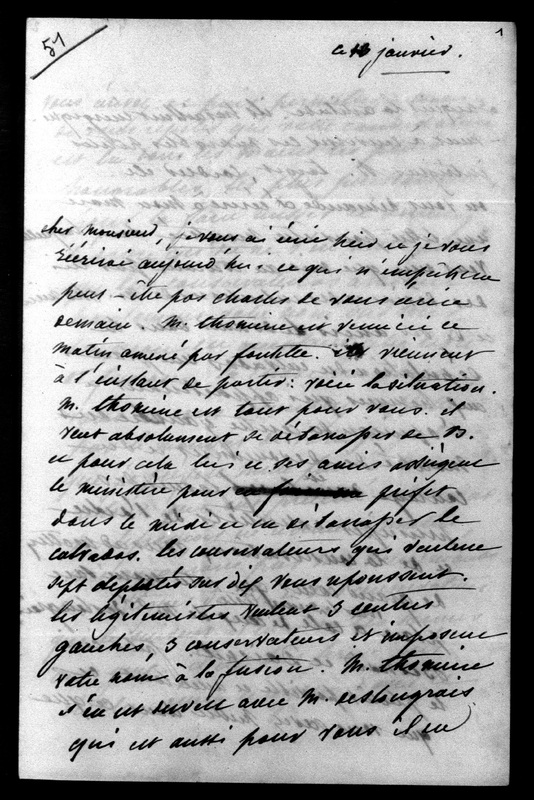 51
1
ce 18 janvier.
cher monsieur, je vous ai écrit hier et je vous
écrirai aujourd'hui ce qui n'empêchera
peut-être pas charles de vous écrire
demain. M. thomine est venu ici ce
matin amené par foutelle. ils viennent
à l'instant de partir : voici la situation.
M. thomine est tout pour vous. il
veut absolument se débarrasser de B.
et pour cela lui et ses amis assiègent
le ministère pour préfet
dans le midi et en débarrasser le
calvados. les conservateurs qui veulent
sept députés sur dix vous repoussent.
les légitimistes veulent 3 centres
gauches, 3 conservateurs et imposent
votre nom à la fusion. M. thomine
s'en est ouvert avec M. deslongrais
qui est aussi pour vous il en